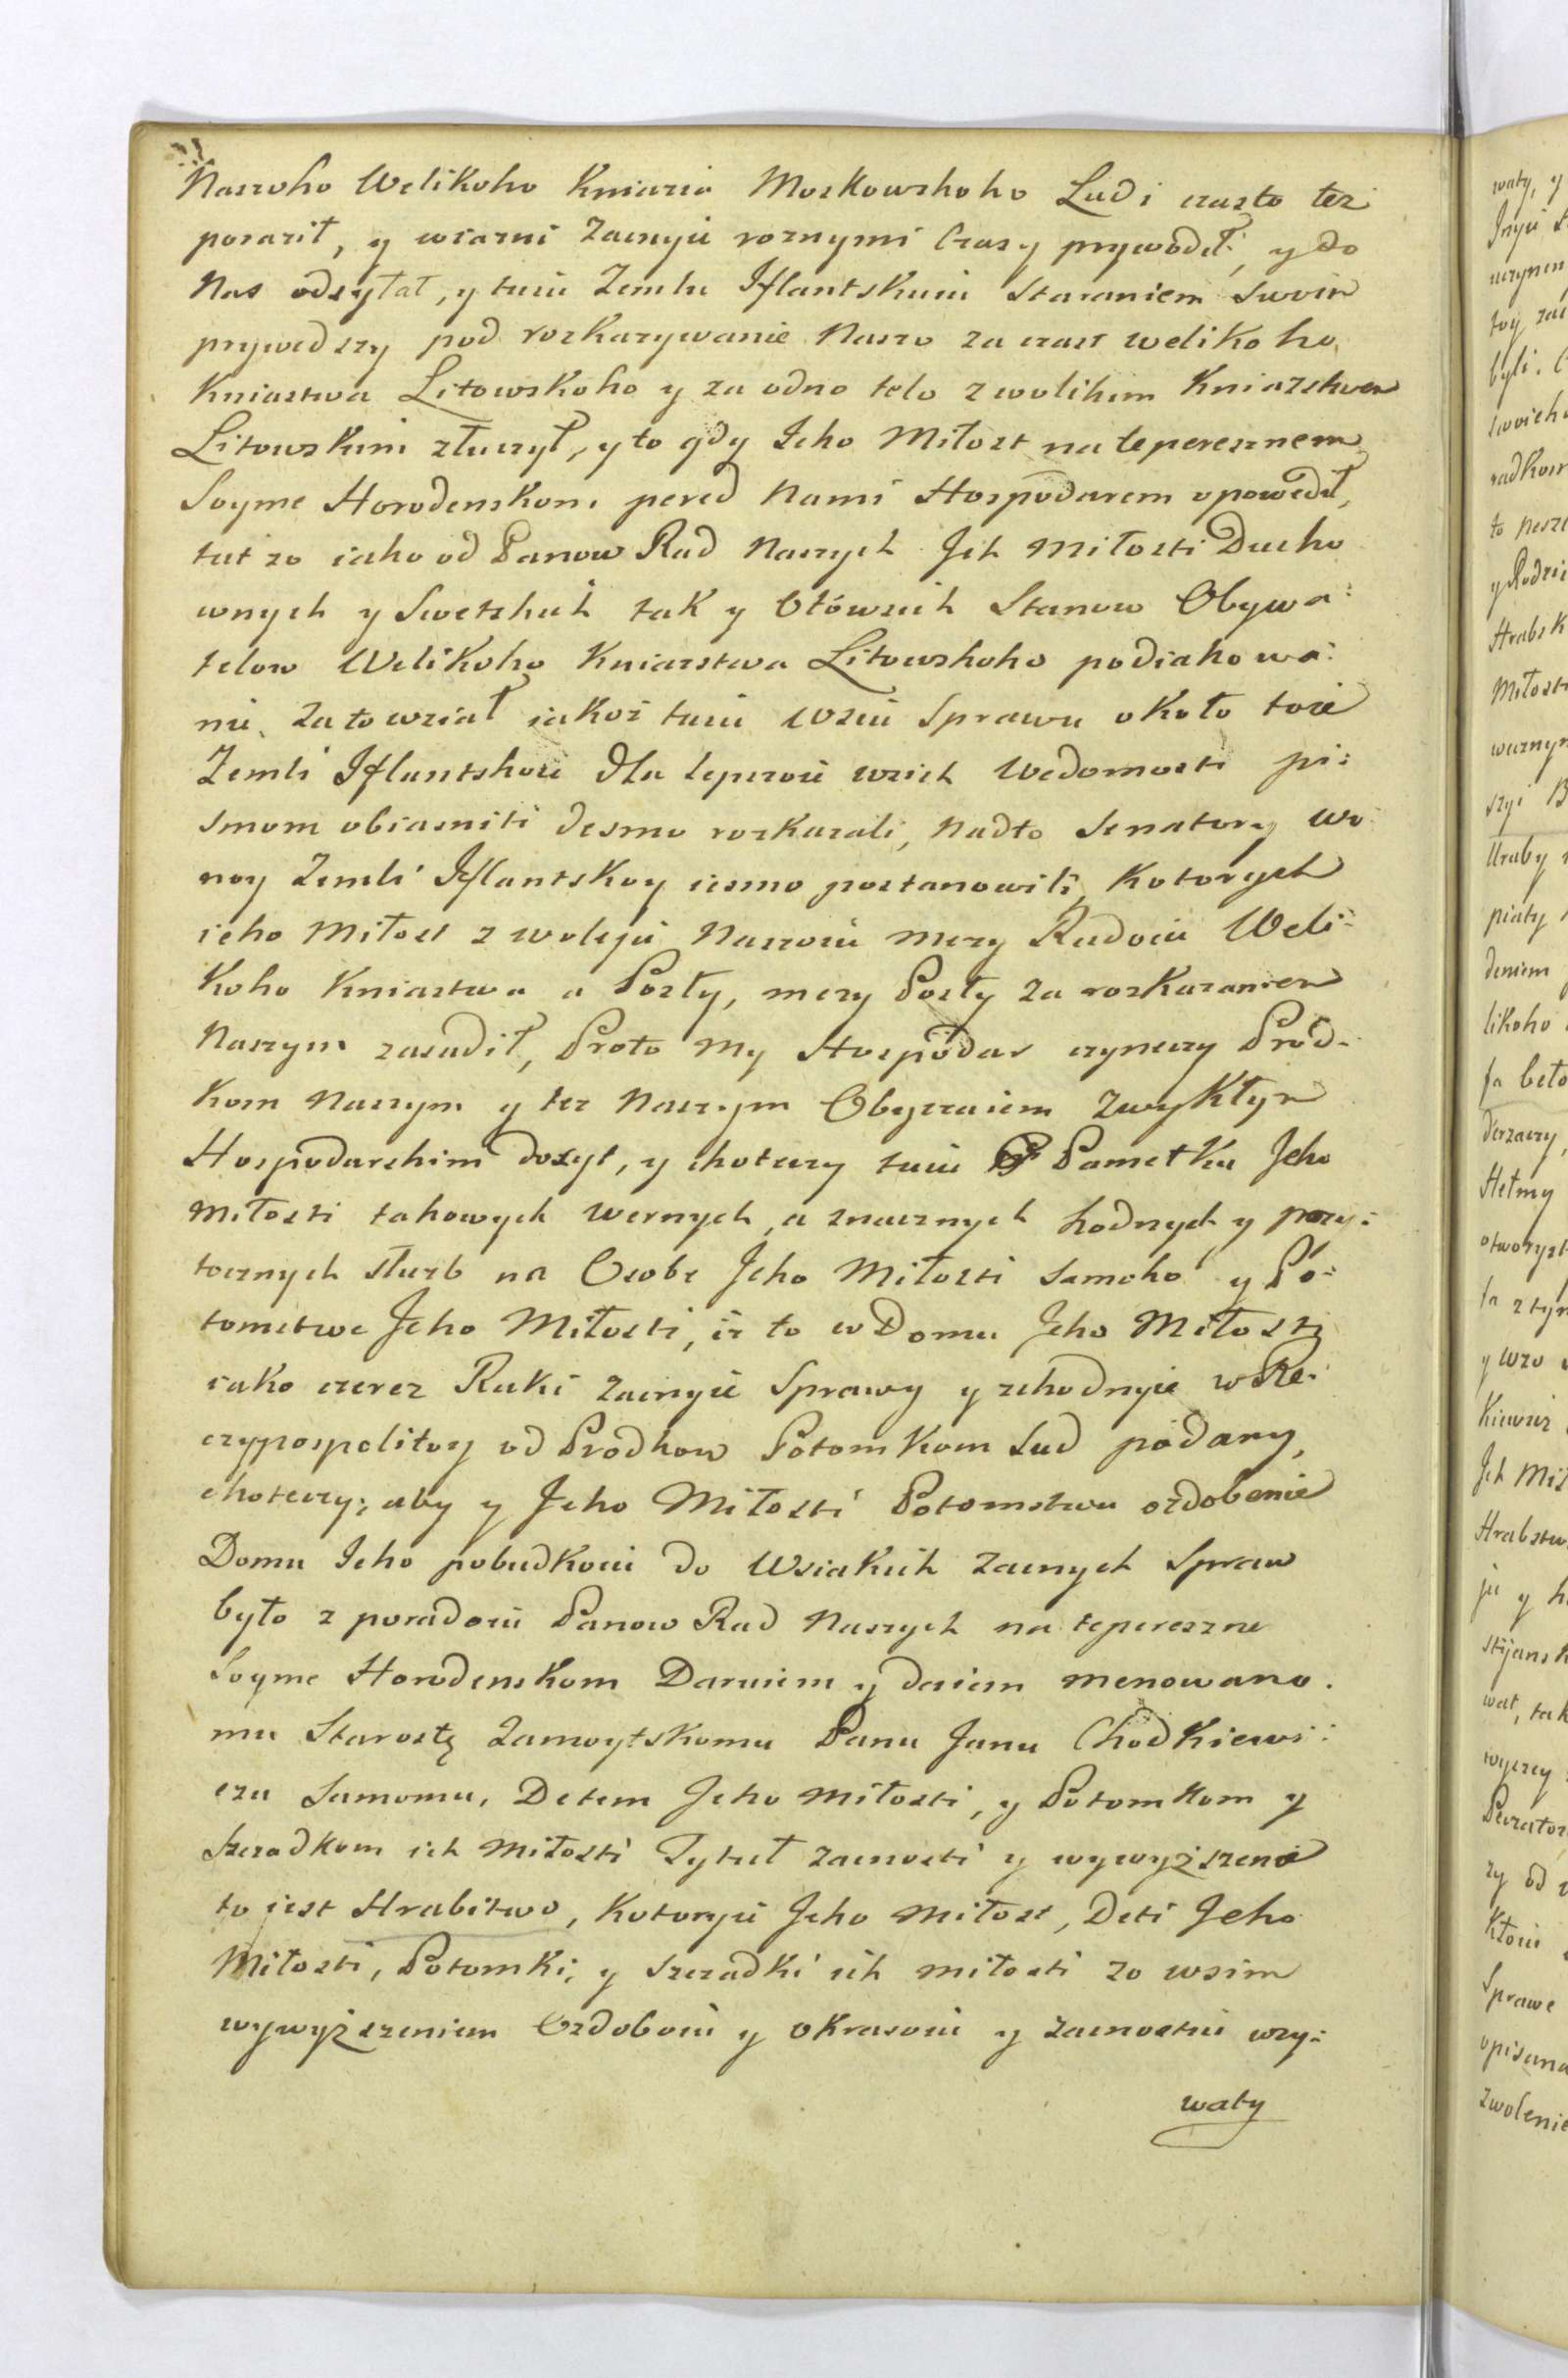 Naszoho Welikoho Kniazia Moskowskoho Ludi czasto też
poraził, y wiazni Zacnyie roznymi Czasy prywodił, y do
Nas odsyłał, y tuiu Zemlu Iflantskuiu Staraniem Swoim
prywedszy pod rozkazywanie Naszo za czast welikoho
Kniastwa Litowskoho y za odno telo z welikim Kniazstwem
Litowskim złuczył, y to gdy Jeho Miłost na teperesznem
Soyme Horodenskom pered Nami Hospodarem opowedił,
tut zo iako od Panow Rad Naszych Ich Miłosti Ducho
wnych y Swetskich tak y Stanow Obywa:
telow Welikoho Kniazstwa Litowskoho podiakowa:
nie za to wział iakoż tuiu wsiu Sprawu około toie
Zemli Iflantskoie Dla lepszoie wsich Wedomosti pi:
smom obiasniti iesmo rozkazali, Nadto Senatory wo
noy Zemli Iflantskoy iesmo postanowili, Kotorych
ieho Miłost z woleju Naszoiu mezy Radoiu Weli:
koho Kniastwa a Posły, mezy Posły za rozkazaniem
Naszym zasadił, Proto My Hospodar czyneczy Prod-
kom Naszym y tez Naszym Obyczaiem Zwykłym
Hospodarskim dosyt, y choteczy tuiu Pametku Jeho
Miłosti takowych wernych, a znacznych hodnych y pozy:
tocznych służb na Osobe Jeho Miłosti samoho y Po:
tomstwe Jeho Miłosti, iż to w Domu Jeho Miłosti
iako czerez Ruki zacnyie Sprawy y zchodnyie w Re:
czypospolitoy od Prodkow Potomkom sud podany,
choteczy, aby y Jeho Miłosti Potomstwu ozdobenie
Domu Jeho pobudkoiu do Wsiakich zacnych Spraw
było z poradoiu Panow Rad Naszych na tepereszne
Soyme Horodenskom Daruiem y daiem menowano.
mu Starostę Zamoytskomu Panu Janu Chodkiewi:
czu Samomu, Detem Jeho Miłosti, y Potomkom y
Szczadkom ich Miłosti Tytuł zacnosti y wywyższenie
to iest Hrabstwo, Kotoryie Jeho Miłost, Deti Jeho
Miłosti, Potomki, y szczadki ich miłosti zo wsim
wywyższeniem Ozdoboiu y okrasoiu y zacnostiu uzy:
waty